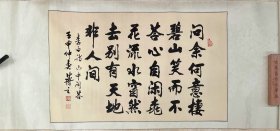 问余何意棲
碧山笑而不
荅心自闲桃
花流水窅然
去别有天地
非人间
李白诗山中问答
壬申仲春